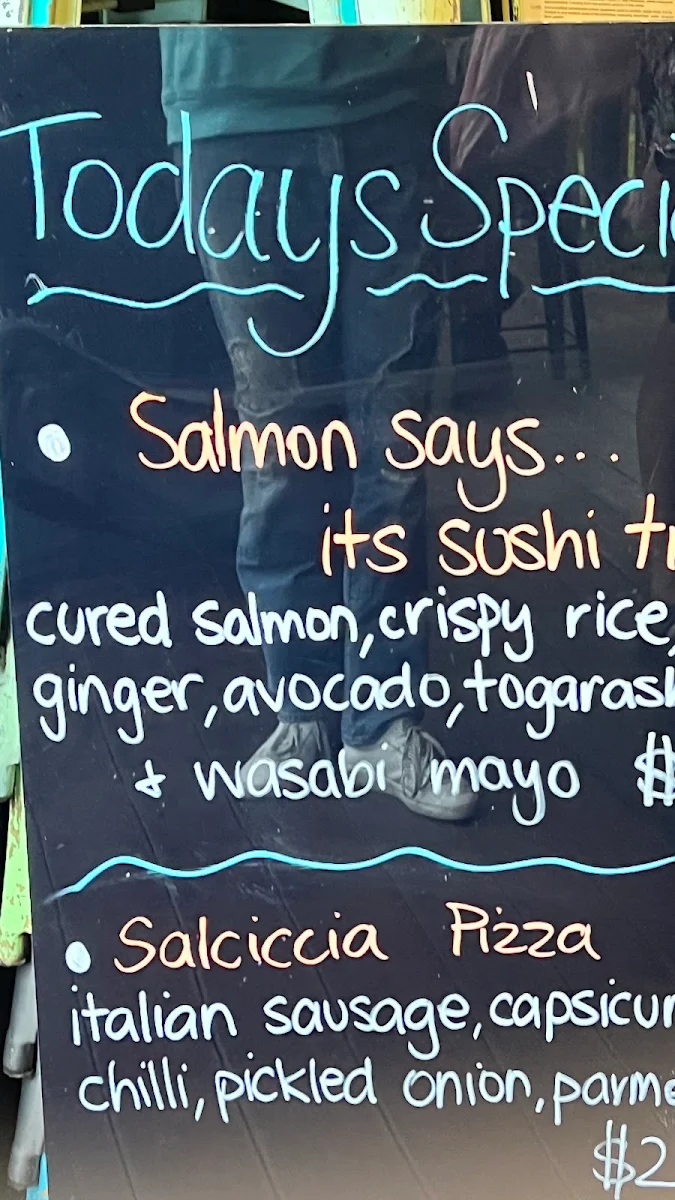 Todays Speci
Salmon says...
its sushi tr
cured salmon, crispy rice,
ginger, avocado, togarash
& wasabi mayo $
Salciccia Pizza
italian sausage, capsicum
chilli, pickled onion, parme
$2